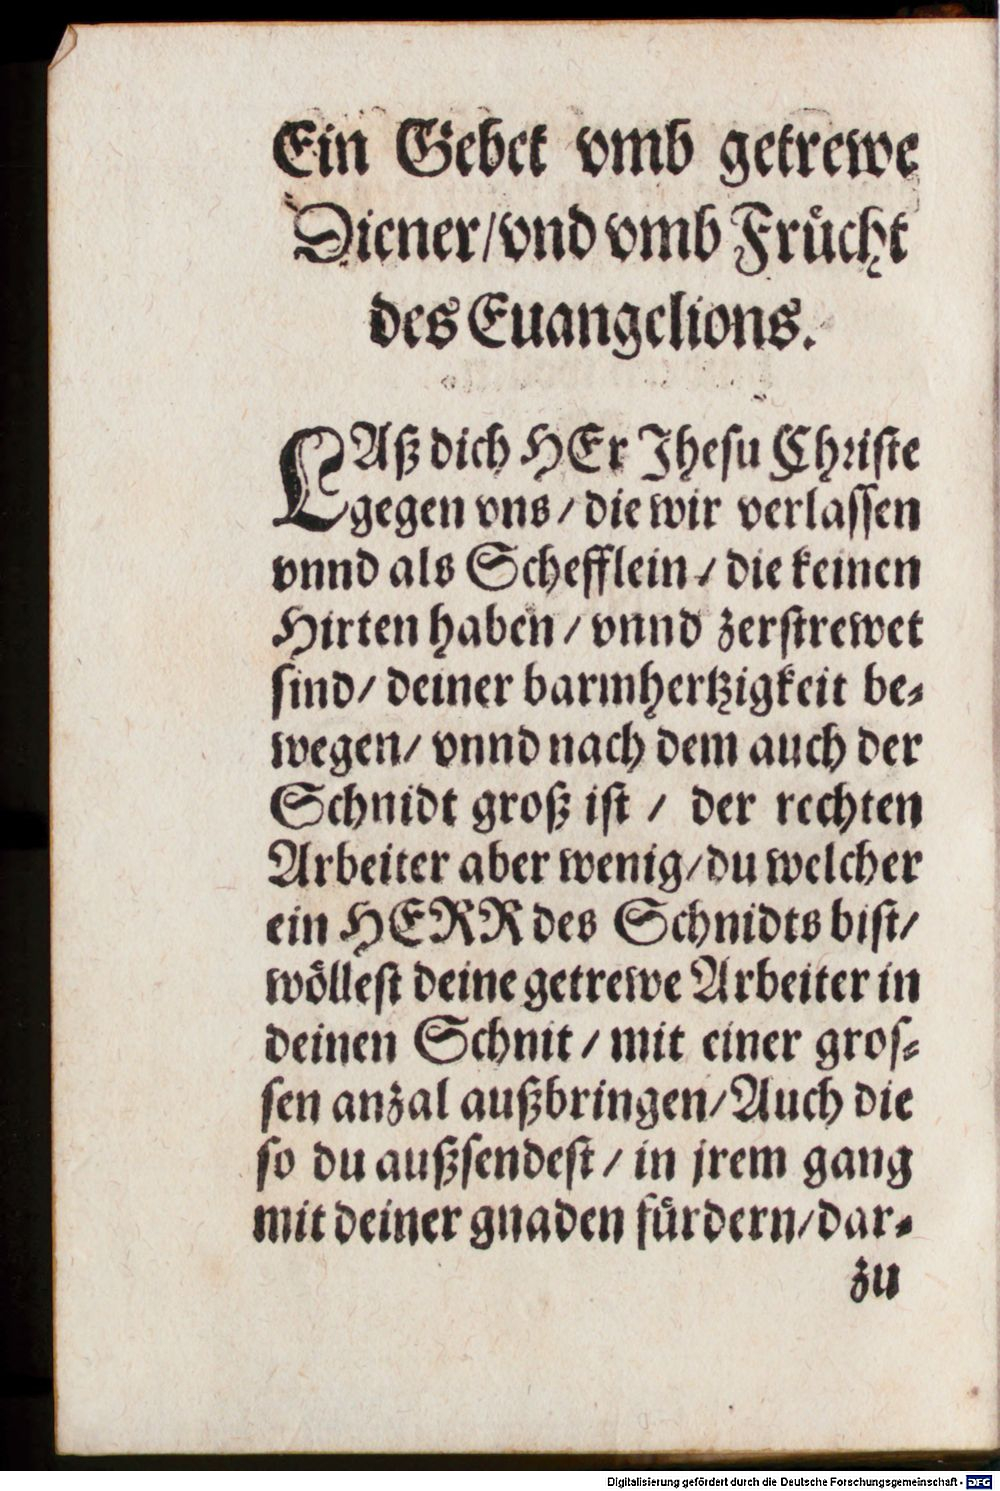 Ein Gebet vmb getrewe
Diener/vnd vmb Frücht
des Euangelions.
LAß dich HErr Jhesu Christe
gegen vns / die wir verlassen
vnnd als Schefflein / die keinen
Hirten haben / vnnd zerstrewet
sind / deiner barmhertzigkeit be-
wegen / vnnd nach dem auch der
Schnidt groß ist / der rechten
Arbeiter aber wenig / du welcher
ein HERR des Schnidts bist /
wöllest deine getrewe Arbeiter in
deinen Schnit / mit einer gros-
sen anzal außbringen / Auch die
so du außsendest / in jrem gang
mit deiner gnaden fürdern / dar-
zu
Digitalisierung gefördert durch die Deutsche Forschungsgemeinschaft - DFG